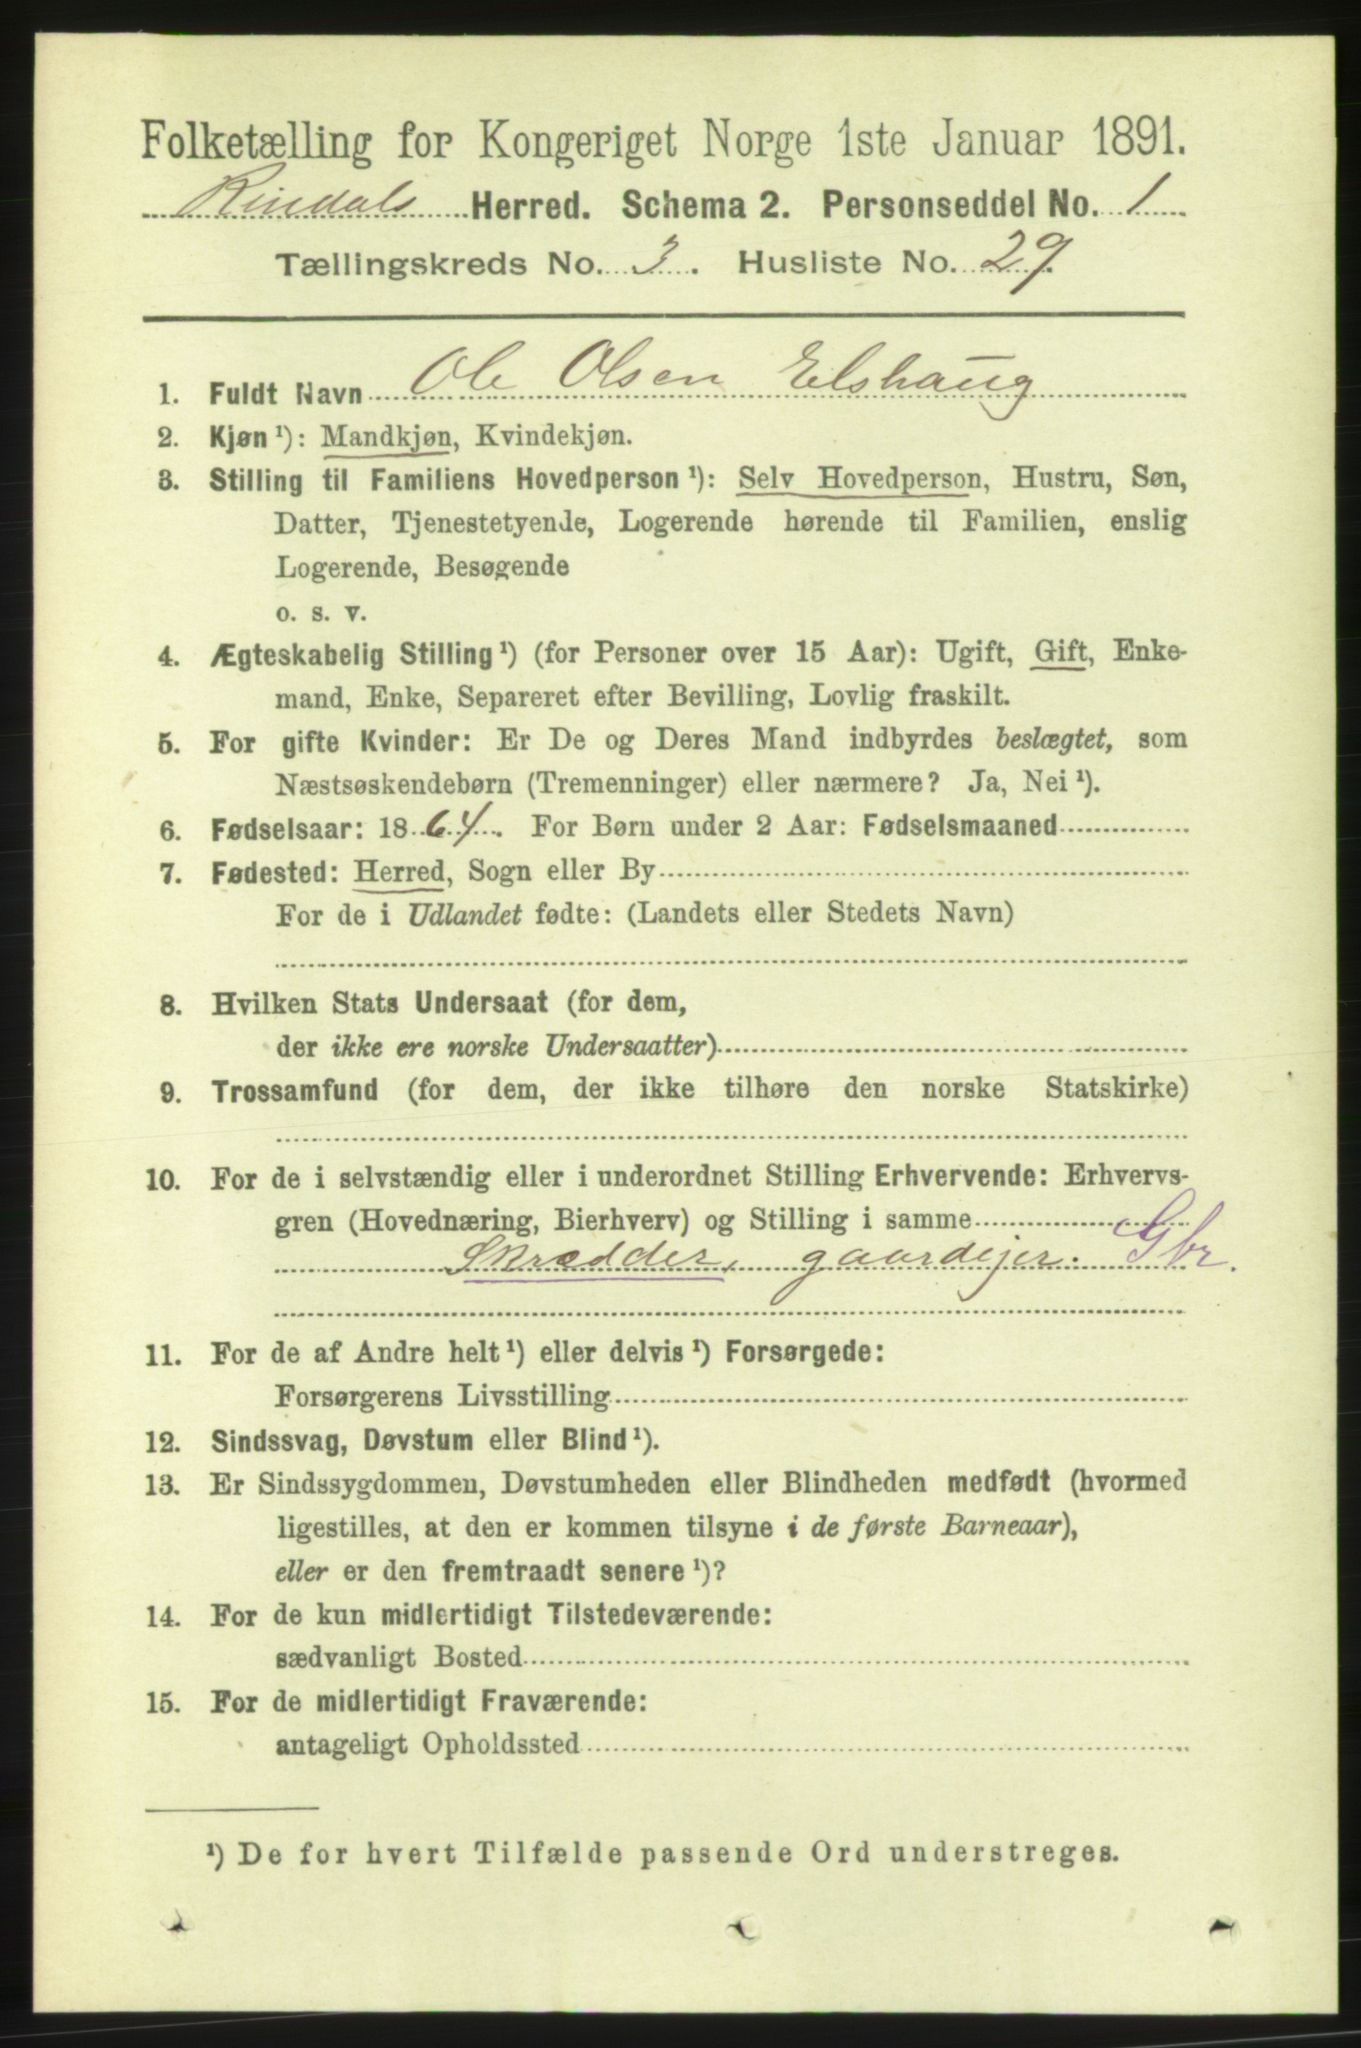 Folketælling for Kongeriget Norge 1ste Januar 1891.
Rindals Herred. Schema 2. Personseddel No. 1
Tællingskreds No. 3. Husliste No. 29.
1. Fuldt Navn Ole Olsen Elshaug
2. Kjøn ¹): Mandkjøn, Kvindekjøn.
3. Stilling til Familiens Hovedperson ¹): Selv Hovedperson, Hustru, Søn,
Datter, Tjenestetyende, Logerende hørende til Familien, enslig
Logerende, Besøgende
o. s. v.
4. Ægteskabelig Stilling ¹) (for Personer over 15 Aar): Ugift, Gift, Enke-
mand, Enke, Separeret efter Bevilling, Lovlig fraskilt.
5. For gifte Kvinder: Er De og Deres Mand indbyrdes beslægtet, som
Næstsøskendebørn (Tremenninger) eller nærmere? Ja, Nei ¹).
6. Fødselsaar: 1864. For Børn under 2 Aar: Fødselsmaaned
7. Fødested: Herred, Sogn eller By
For de i Udlandet fødte: (Landets eller Stedets Navn)
8. Hvilken Stats Undersaat (for dem,
der ikke ere norske Undersaatter)
9. Trossamfund (for dem, der ikke tilhøre den norske Statskirke)
10. For de i selvstændig eller i underordnet Stilling Erhvervende: Erhvervs-
gren (Hovednæring, Bierhverv) og Stilling i samme
Skrædder, gaardejer. Gbr.
11. For de af Andre helt ¹) eller delvis ¹) Forsørgede:
Forsørgerens Livsstilling
12. Sindssvag, Døvstum eller Blind ¹).
13. Er Sindssygdommen, Døvstumheden eller Blindheden medfødt (hvormed
ligestilles, at den er kommen tilsyne i de første Barneaar),
eller er den fremtraadt senere ¹)?
14. For de kun midlertidigt Tilstedeværende:
sædvanligt Bosted
15. For de midlertidigt Fraværende:
antageligt Opholdssted
¹) De for hvert Tilfælde passende Ord understreges.